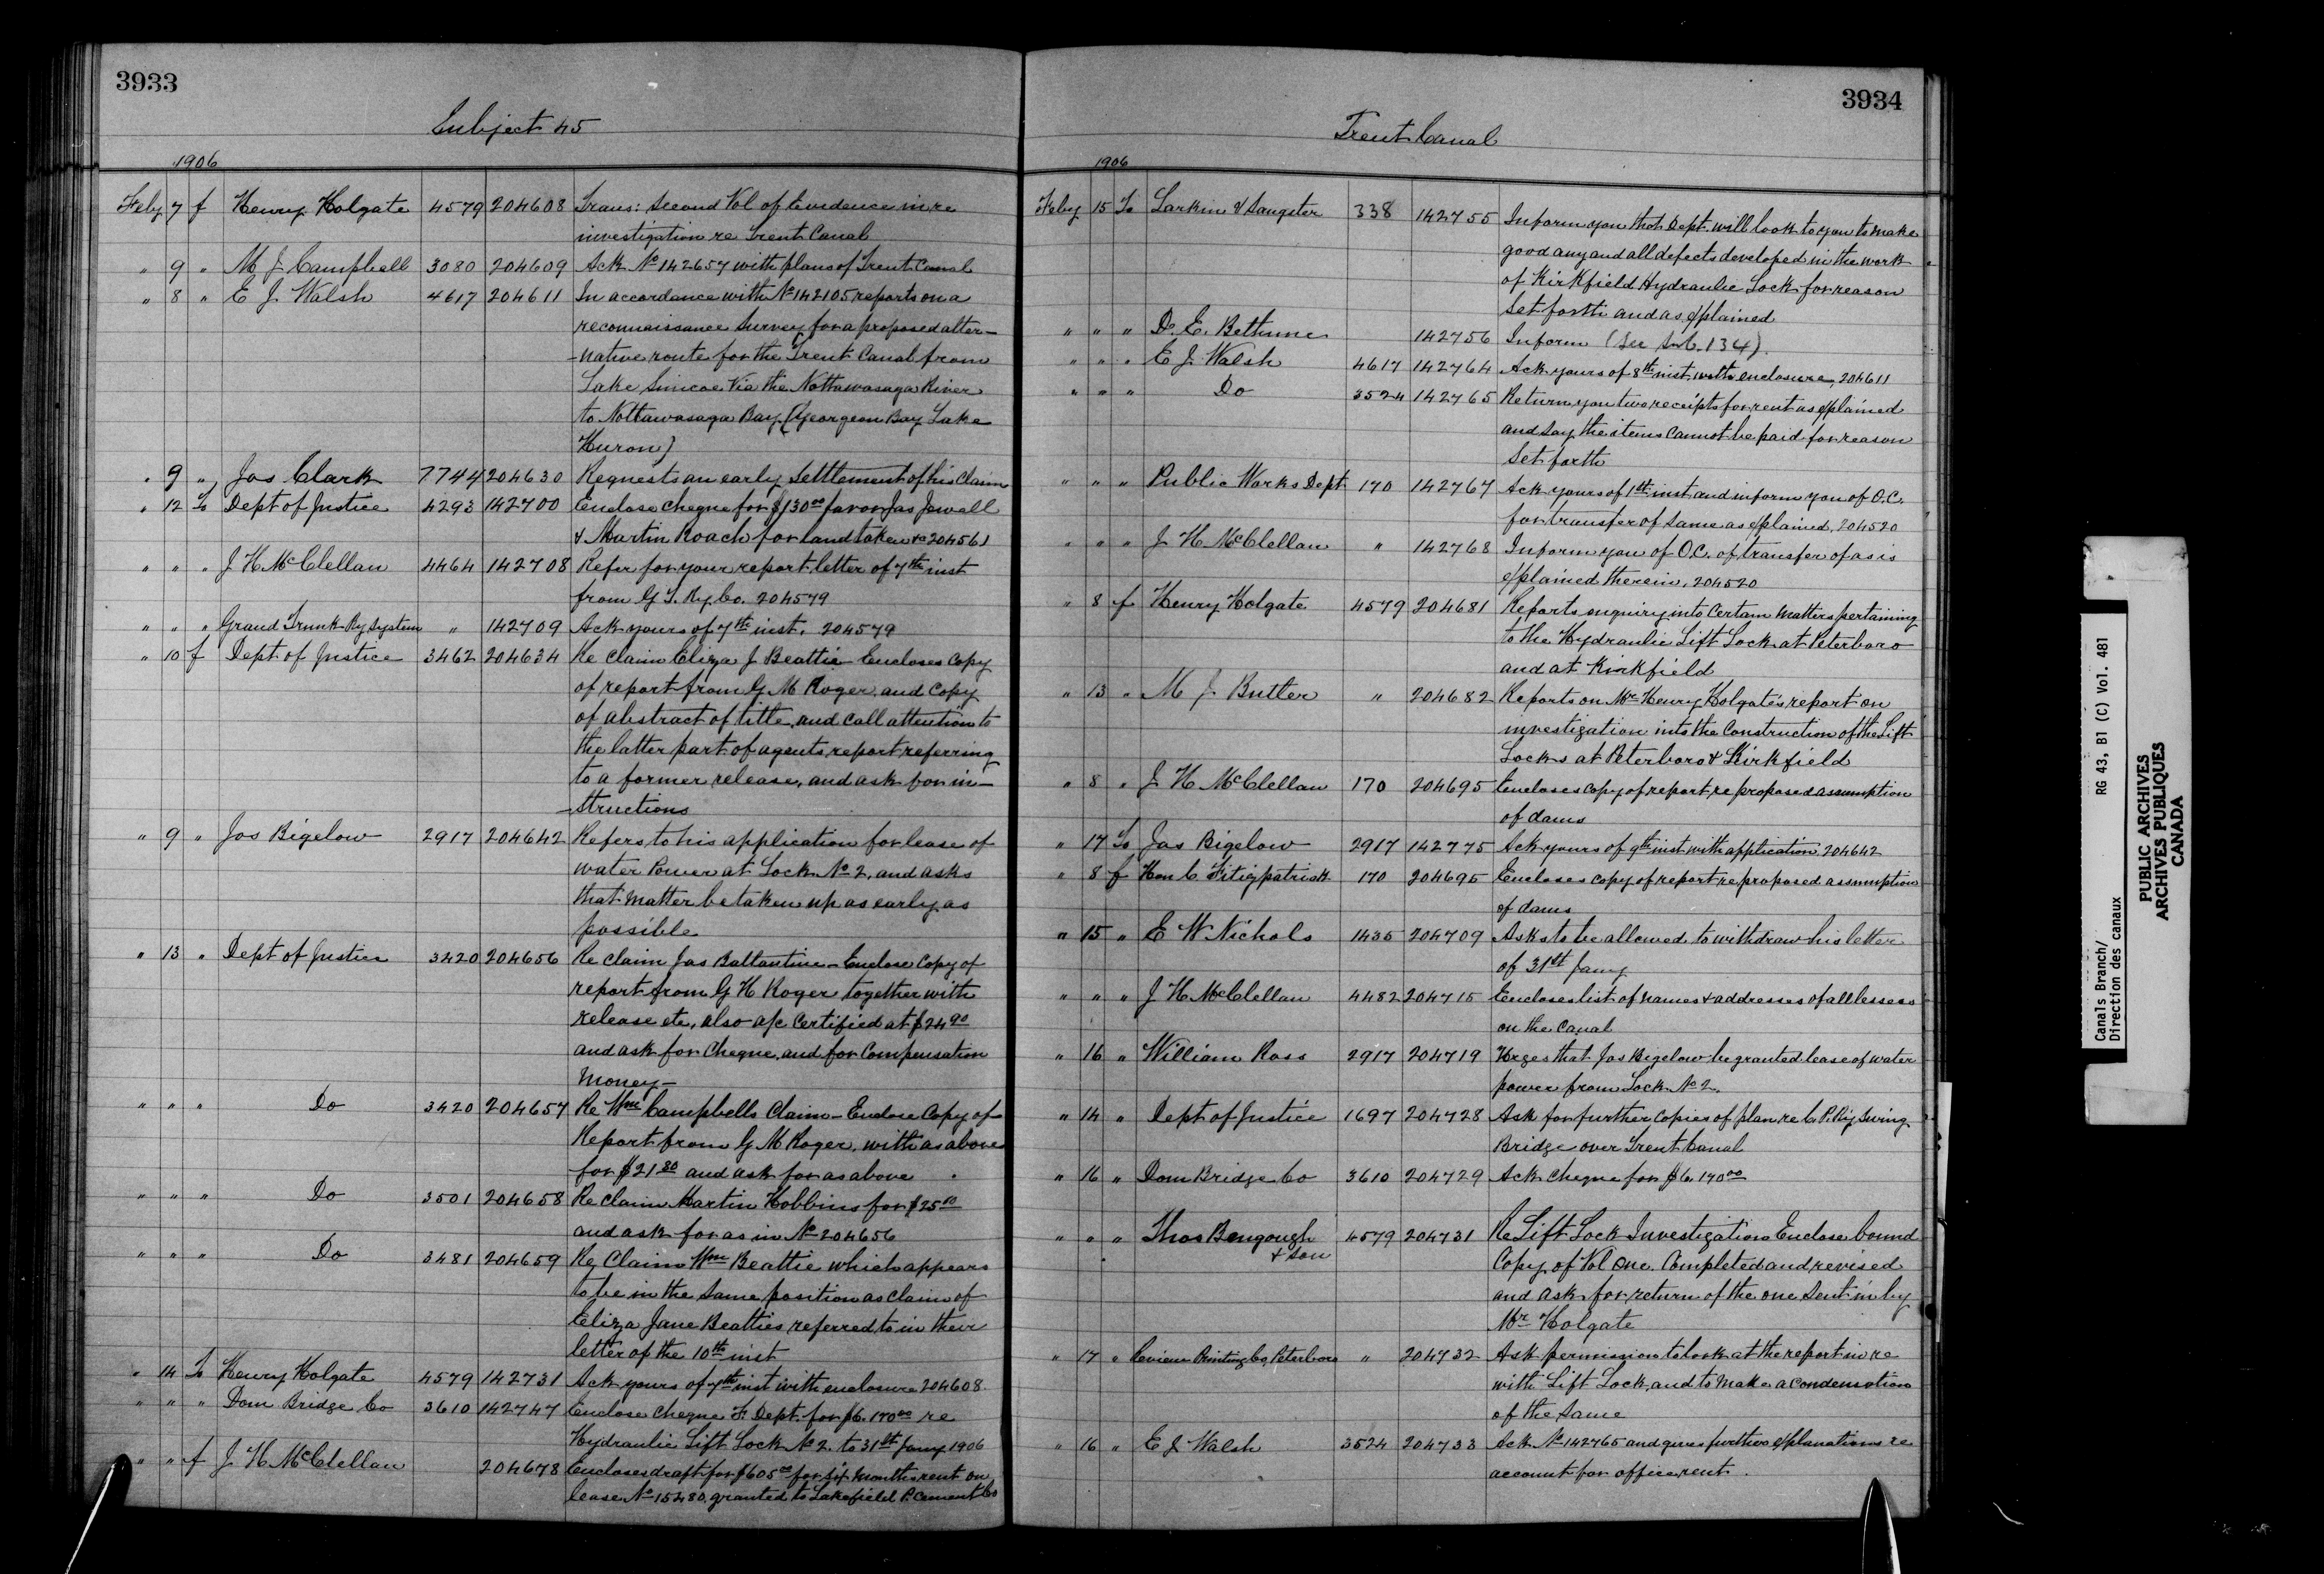 3933
Subject 45
1906
Feby 7 f Henry Holgate 4579 204608 Trans: Second Vol of Evidence in re
investigation re Trent Canal
" 9 " M J Campbell 3080 204609 Ack No 142657 with plans of Trent Canal
" 8 " E J Walsh 4617 204611 In accordance with No 142105 reports on a
reconnaissance Survey for a proposed alter-
-native route for the Trent Canal from
Lake Simcoe Via the Nottawasaga River
to Nottawasaga Bay (Georgean Bay Lake
Huron)
" 9 " Jas Clark 7744 204630 Requests an early Settlement of his Claim
" 12 To Dept of Justice 4293 142700 Enclose Cheque for $130.00 favor Jas Jewell
& Martin Roach for land taken &c 204561
" " " J H McClellan 4464 142708 Refer for your report letter of 7th inst
from G T. Ry Co. 204579
" " " Grand Trunk Ry System " 142709 Ack yours of 7th inst. 204579
" 10 f Dept of Justice 3462 204634 Re Claim Eliza J Beattie Encloses Copy
of report from G M Roger, and Copy
of abstract of title, and call attention to
the latter part of agents report referring
to a former release, and ask for in-
-structions
" 9 " Jos Bigelow 2917 204642 Refers to his application for lease of
water Power at Lock No 2, and asks
that matter be taken up as early as
possible
" 13 " Dept of Justice 3420 204656 Re Claim Jas Ballantine - Enclose Copy of
report from G H Roger together with
release etc, also a/c Certified at $24.90
and ask for Cheque, and for Compensation
Money -
" " " Do 3420 204657 Re Wm Campbells Claim - Enclose Copy of
Report from G M Roger, with as above
for $21.80 and ask for as above
" " " Do 3501 204658 Re Claim Martin Hobbins for $25.10
and ask for as in No 204656
" " " Do 3481 204659 Re Claim Wm Beattie which appears
to be in the same position as Claim of
Eliza Jane Beatties referred to in their
letter of the 10th inst
" 14 To Henry Holgate 4579 142731 Ack yours of 7th inst with enclosure 204608.
" " " Dom Bridge Co 3610 142747 Enclose Cheque F. Dept. for $6.170.00 re
Hydraulic Lift Lock No 2. to 31st Jany 1906
" " f J H McClellan 204678 Encloses draft for $605.00 for six months rent on
lease No 15480, granted to Lakefield P. Cement Co
3934
Trent Canal
1906
Feby 15 To Larkin & Sangster 338 142755 Inform you that Dept. will look to you to make
good any and all defects developed in the work
of Kirkfield Hydraulic Lock for reason
Set forth and as explained
" " " D. E. Bethune 142756 Inform (See Sub. 134).
" " " E J Walsh 4617 142764 Ack yours of 8th inst with enclosure, 204611
" " " Do 3524 142765 Return you two receipts for rent as explained
and say the items Cannot be paid for reason
Set forth
" " " Public Works Dept 170 142767 Ack yours of 1st inst and inform you of O.C.
for transfer of same as explained, 204520
" " " J H McClellan " 142768 Inform you of O.C. of transfer of as is
explained therein. 204520
" 8 f Henry Holgate 4579 204681 Reports enquiry into Certain Matters pertaining
to the Hydraulic Lift Lock at Peterboro
and at Kirkfield
" 13 " M J Butler " 204682 Reports on Mr Henry Holgate's report on
investigation into the Construction of the Lift
Locks at Peterboro & Kirkfield
" 8 " J H McClellan 170 204695 Encloses copy of report re proposed assumption
of dams
" 17 To Jas Bigelow 2917 142775 Ack yours of 9th inst with application 204642
" 8 f Hon C Fitizpatrick 170 204695 Encloses copy of report re proposed assumption
of dams
" 15 " E W Nichols 1435 204709 Asks to be allowed to withdraw his letter
of 31st Jany
" " " J H McClellan 4482 204715 Encloses list of names & addresses of all lessees
on the Canal
" 16 " William Ross 2917 204719 Urges that Jas Bigelow be granted lease of water
power from Lock No 2.
" 14 " Dept of Justice 1697 204728 Ask for further copies of plan re C. P. Ry Swing
Bridge over Trent Canal
" 16 " Dom Bridge Co 3610 204729 Ack cheque for $6.170.00
" " " Thos Bengough 4579 204731 Re Lift Lock Investigation Enclose bound
& Son Copy of Vol One. Completed and revised
and ask for return of the one Sent in by
Mr Holgate
" 17 " Review Printing Co, Peterboro " 204732 Ask permission to look at the report in re
with Lift Lock, and to make a condensation
of the Same
" 16 " E J Walsh 3524 204733 Ack No 142765 and gives further explanations re
account for office rent.
Canals Branch/ RG 43, B1 (C) Vol. 481
Direction des canaux
PUBLIC ARCHIVES
ARCHIVES PUBLIQUES
CANADA